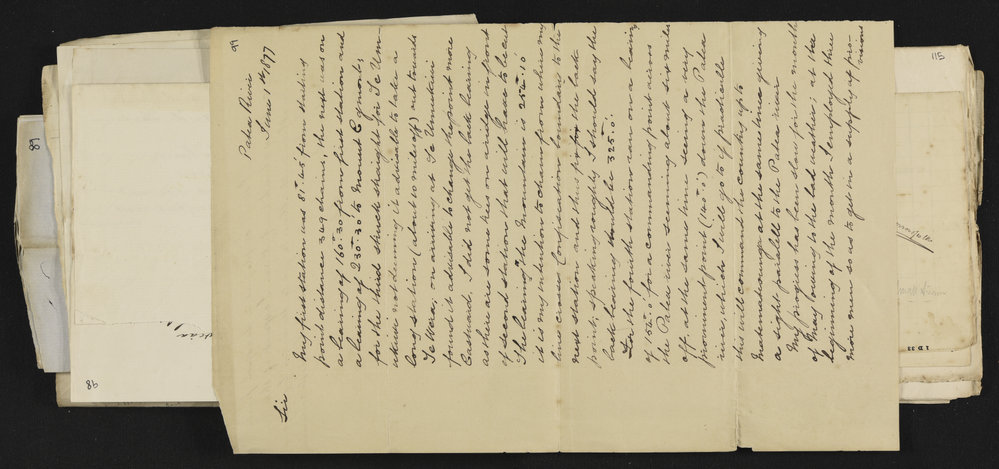 99
Patea River
June 1st 1877
Sir
My first station was 81°.45' from starting
point distance 349 chains, the next was on
a bearing of 160°.30' from first station and
a bearing of 230°.30' to Mount Egmont
for the third struck straight for Te Um-
not deeming it advisable to take a
long station (about 10 miles off) not towards
Te Wera, on arriving at Te
found it advisable to change hypoint more
Eastward, I did not get the back bearing
as there are some trees on airley in front
of second station that will have to be cut
The bearing of the Maunder is 20°.10
it is my intention to change from when my
line crosses Confiscation boundary to the
next station and thus for the back
point, speaking roughly I should say the
back bearing would be 325°.0'.
In the fourth station ran on a bearing
of 182°.0' for a commanding point across
the Patea river seeming about six miles
off at the same time seeing a very
prominent point (140°.0') down the Patea
river, which I will go to if practicable
this will command the country up to
Matemateonga at the same time giving
a sight parallel to the Patea river
My progress has been slow for the month
of May (owing to the bad weather; at the
beginning of the month I employed three
more men so as to get in a supply of pro-
visions
68
98
115
1 D 22